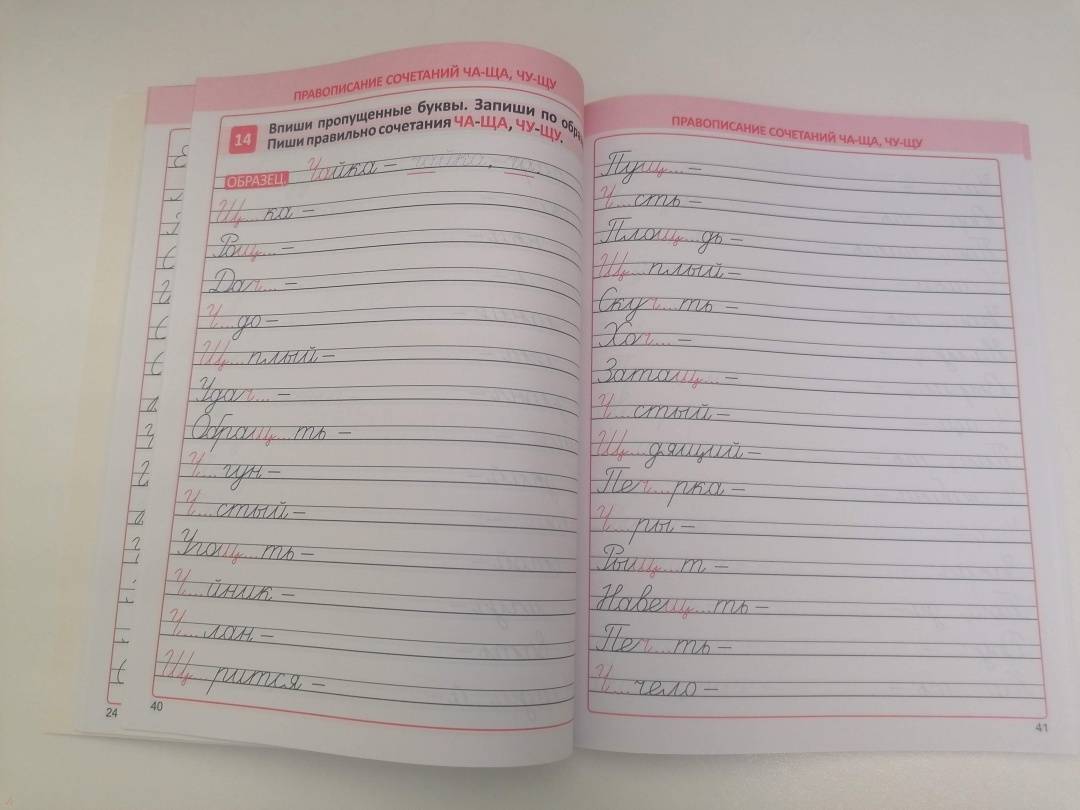 ПРАВОПИСАНИЕ СОЧЕТАНИЙ ЧА-ЩА, ЧУ-ЩУ
14
Впиши пропущенные буквы. Запиши по
Пиши правильно сочетания ЧА-ЩА, ЧУ-ЩУ.
ОБРАЗЕЦ. Чайка – чайка,
Щ...ка –
Рощ... –
Дач... –
Ч...до –
Щ...плый –
Удач... –
Обращ...ть –
Ч...гун –
Ч...стый –
Угощ...ть –
Ч...йник –
Ч...лан –
Щ...рится –
24
40
ПРАВОПИСАНИЕ СОЧЕТАНИЙ ЧА-ЩА, ЧУ-ЩУ
Пущ... –
Ч...сть –
Площ...дь –
Щ...плый –
Скуч...ть –
Хоч... –
Затащ... –
Ч...стый –
Щ...дящий –
Печ...рка –
Ч...ры –
Рыщ...т –
Навещ...ть –
Печ...ть –
Ч...чело –
41